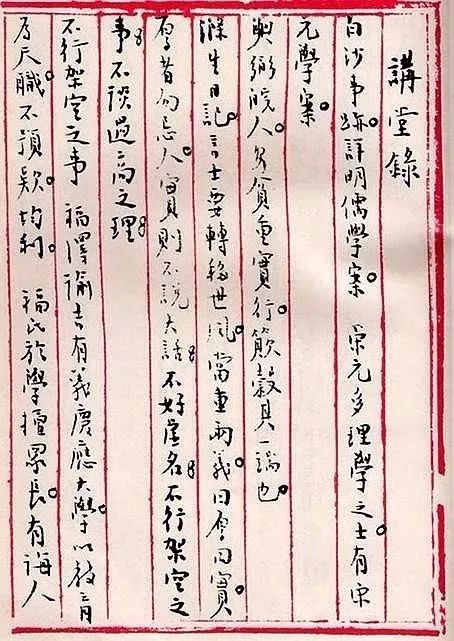 講堂錄
白沙事跡詳明儒學案。 宋元多理學之士有宋
元學案。
與弼皖人。貧重實行。簸穀其一端也。
滌生日記。言士要轉移世風。當重兩義曰厚曰實。
厚者勿忌人。實則不說大話。不好虛名。不行架空之
事。不談過高之理。
不行架空之事 福澤諭吉有義慶應大學。以教育
為天職。不預均利。 福氏於學擅眾長有誨人